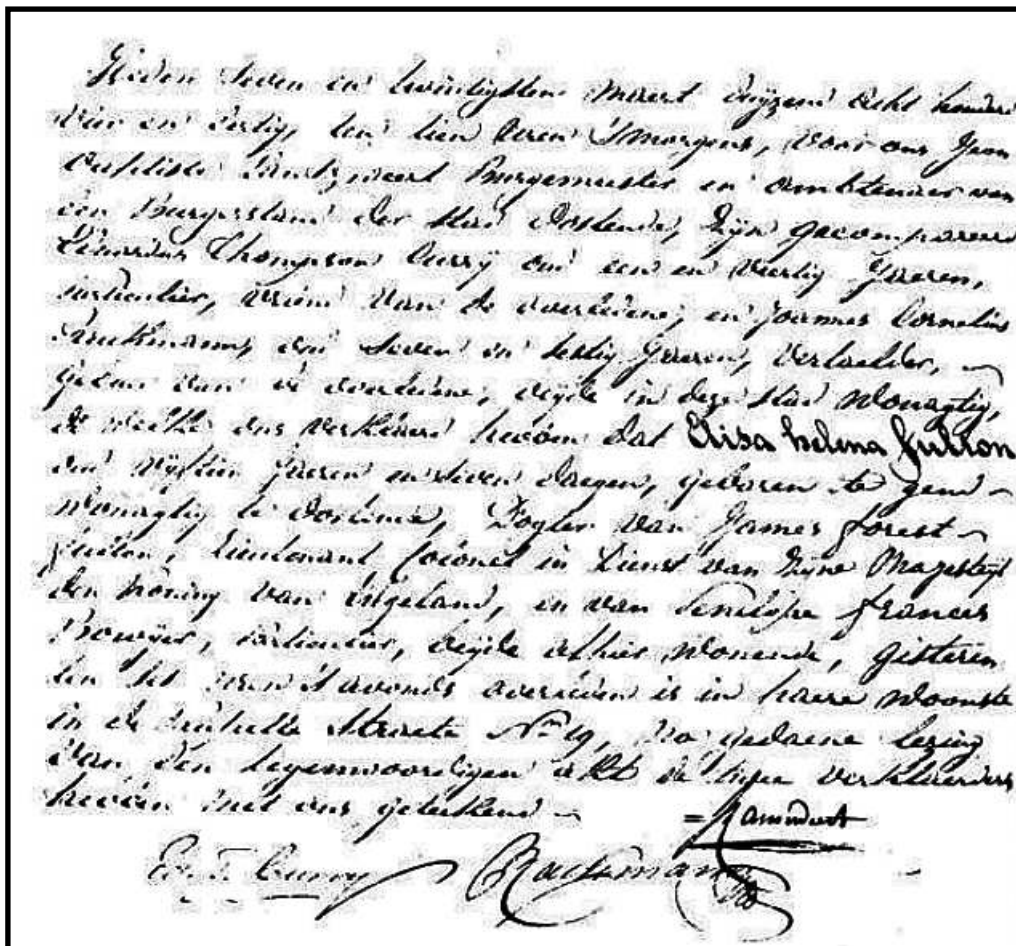 Heden seven en twintigsten Maert duyzend acht honderd
vier en dertig, ten tien Uren 'Smorgens, voor ons Jean
Baptiste Burgemeester en ambtenaer van
den Burgerstand der Stad Oostende, Zyn gecompareerd
Thompson Curry oud een en Veertig Jaeren,
particulier, vriend van de overledene, en Joannes Cornelius
oud seven en Jaeren, Vertaelder,
gebuer van de overledene, beyde in deze Stad Wonagtig,
de welke ons verklaerd hebben dat Elisa helena fulton
oud vyftien Jaeren en seven Daegen, geboren te gend
Wonagtig te Oostende, Dogter van James forest
fulton, Lieutenant Colonel in Dienst van Zyne Majesteyt
den Koning van Engeland, en van Penelope frances
Bowyer, particulier, beyde alhier Wonende, gisteren
ten Uren 'S avonds overleden is in haere Woonste
in de Straete Nro 19, Na gedaene lezing
van den tegenwoordigen akt de twee verklaerders
hebben met ons geteekend
Ed. T. Curry